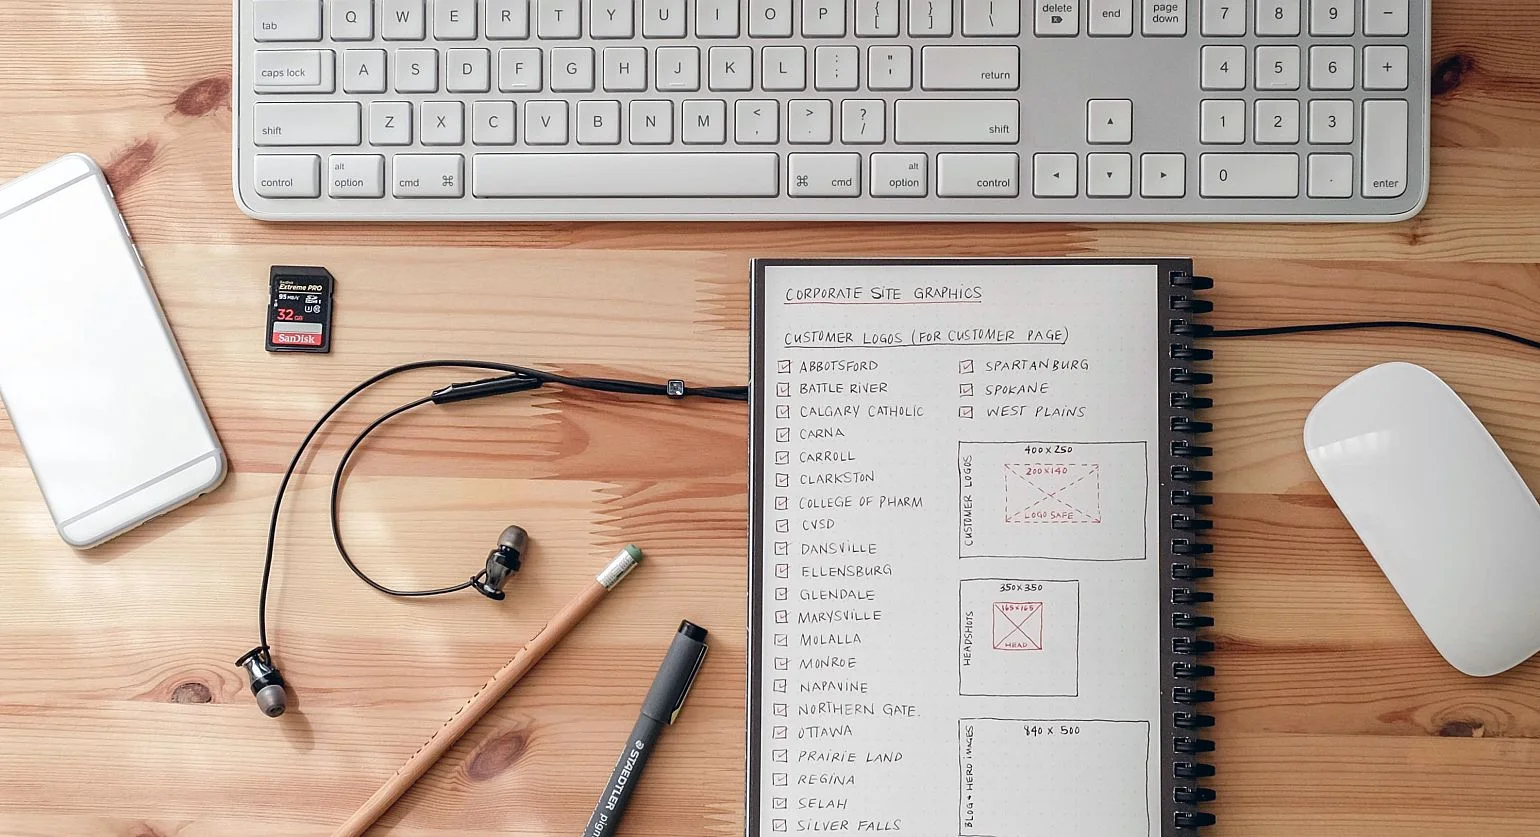 tab Q W E R T Y U I O P { [ } ] | \ delete end page down 7 8 9 −
caps lock A S D F G H J K L : ; " ' return 4 5 6 +
shift Z X C V B N M < , > . ? / shift ▲ 1 2 3
control alt option cmd ⌘ ⌘ cmd alt option control ◄ ▼ ► 0 . enter
SanDisk
Extreme PRO
95 MB/s
32 GB
SanDisk
STAEDTLER pigm
CORPORATE SITE GRAPHICS
CUSTOMER LOGOS (FOR CUSTOMER PAGE)
ABBOTSFORD
BATTLE RIVER
CALGARY CATHOLIC
CARNA
CARROLL
CLARKSTON
COLLEGE OF PHARM
CVSD
DANSVILLE
ELLENSBURG
GLENDALE
MARYSVILLE
MOLALLA
MONROE
NAPAVINE
NORTHERN GATE.
OTTAWA
PRAIRIE LAND
REGINA
SELAH
SILVER FALLS
SPARTANBURG
SPOKANE
WEST PLAINS
CUSTOMER LOGOS
400 x 250
200 x 140
LOGO SAFE
HEADSHOTS
350 x 350
165 x 165
HEAD
BLOG + HERO IMAGES
840 x 500